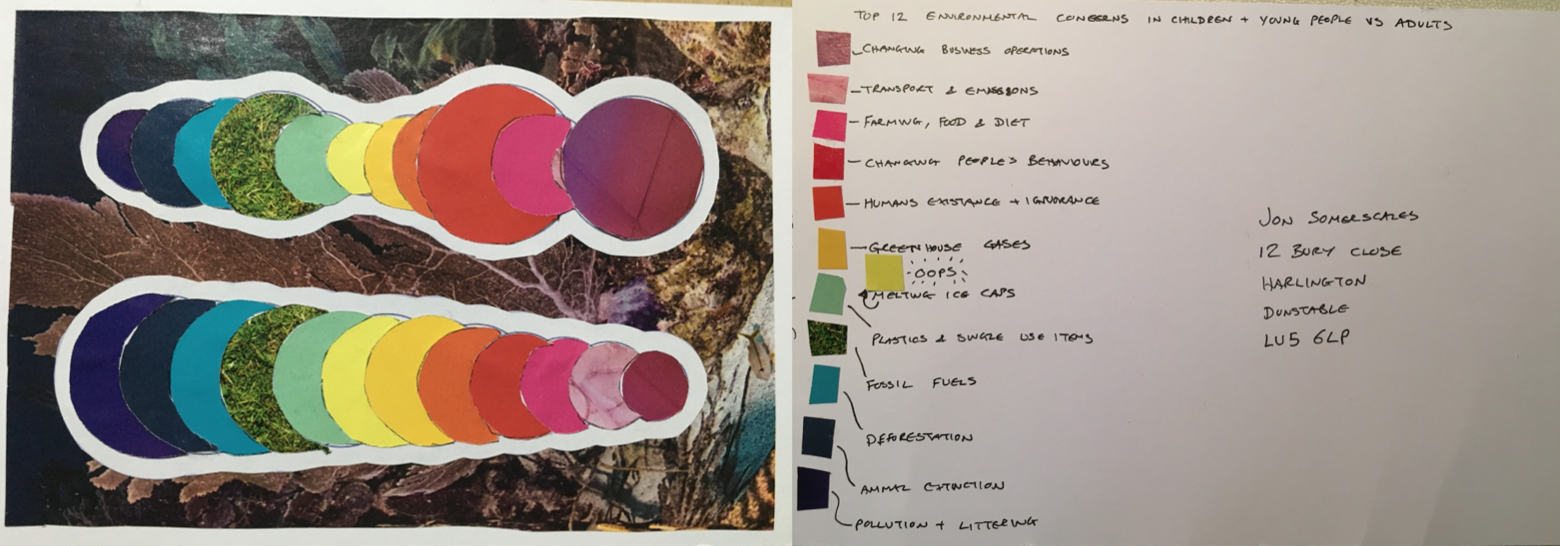 TOP 12 ENVIRONMENTAL CONCERNS IN CHILDREN + YOUNG PEOPLE VS ADULTS
CHANGING BUSINESS OPERATIONS
TRANSPORT & EMISSIONS
FARMING, FOOD & DIET
CHANGING PEOPLE'S BEHAVIOURS
HUMANS EXISTANCE + IGNORANCE
GREENHOUSE GASES
OOPS
MELTING ICE CAPS
PLASTICS & SINGLE USE ITEMS
FOSSIL FUELS
DEFORESTATION
ANIMAL EXTINCTION
POLLUTION + LITTERING
JON SOMERSCALES
12 BURY CLOSE
HARLINGTON
DUNSTABLE
LU5 6LP